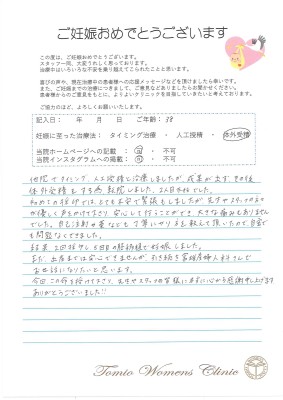 ご妊娠おめでとうございます
この度は、ご妊娠おめでとうございます。
スタッフ一同、大変うれしく思っております。
治療中はいろいろな不安を乗り越えてこられたことと思います。
喜びの声や、現在治療中の患者様への応援メッセージなどを頂けましたら幸いです。
また、ご妊娠までの治療につきまして、ご意見などありましたらお聞かせください。
患者様からのご意見をもとに、よりよいクリニックを目指していきたいと考えております。
ご協力のほど、よろしくお願いいたします。
記入日： 年 月 日 ご年齢： 38
妊娠に至った治療法： タイミング治療 ・ 人工授精 ・ 体外受精
当院ホームページへの記載 ： 可 ・ 不可
当院インスタグラムへの掲載 ： 可 ・ 不可
他院でタイミング、人工授精と治療しましたが、成果が出ず、その後
体外受精をする為、転院しました。2人目不妊でした。
初めての採卵ではとても不安で緊張もしましたが、先生やスタッフの方々
が優しく声をかけて下さり、安心して行うことができ、大きな痛みもありません
でした。自己注射や薬なども丁寧にしっかりと教えて頂いたので、自宅で
も問題なくできました。
結果、2回移植し5日目の胚盤胞で妊娠しました。
まだ、出産までは安心できませんが、引き続き富緒産婦人科さんで
お世話になりたいと思います。
今回、この命を授けて下さり、先生やスタッフの皆様にまずは心から感謝申し上げます
ありがとうございました!!
Tomio Womens Clinic